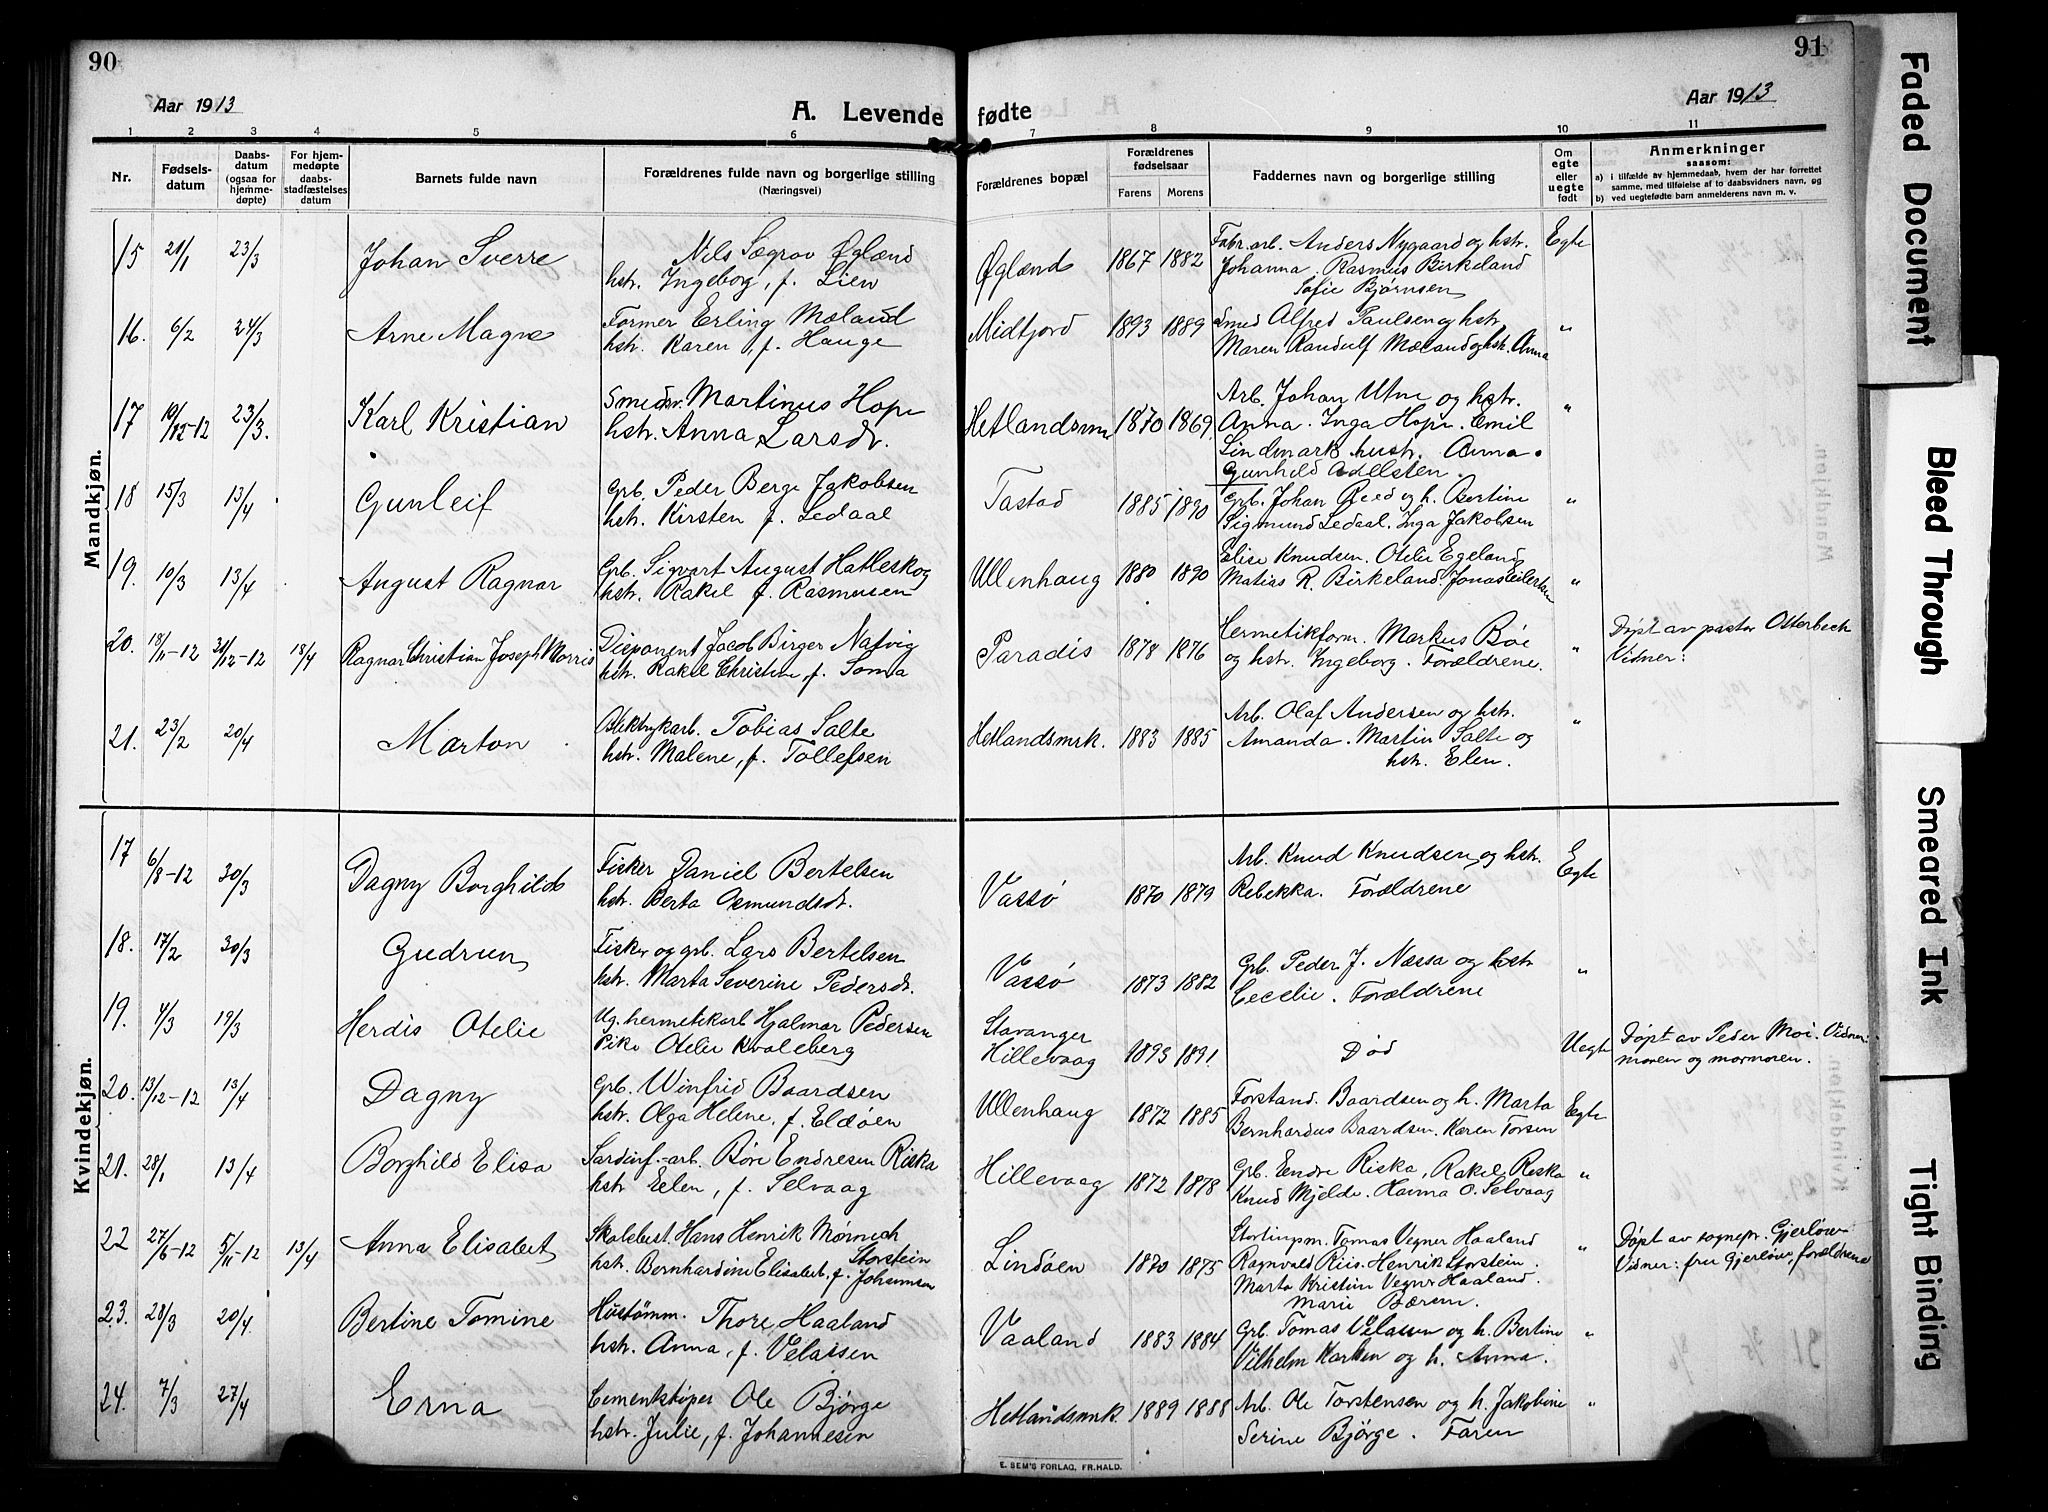 90
91
Aar 1913
A. Levende fødte
Aar 1913
1 2 3 4 5 6 7 8 9 10 11
Nr.
Fødselsdatum
Daabsdatum (ogsaa for hjemmedøpte)
For hjemmedøpte daabsstadfæstelses datum
Barnets fulde navn
Forældrenes fulde navn og borgerlige stilling
(Næringsvei)
Forældrenes bopæl
Forældrenes fødselsaar
Farens Morens
Faddernes navn og borgerlige stilling
Om egte eller uegte født
Anmerkninger
saasom:
a) i tilfælde av hjemmedaab, hvem der har forrettet samme, med tilføielse af to daabsvidners navn, og
b) ved uegtefødte barn anmelderens navn m. v.
Mandkjøn.
15 21/1 23/3 Johan Sverre
Nils Sægrov Øglænd
hstr. Ingeborg, f. Lien
Øglænd 1867 1882
Fabr.arb. Anders Nygaard og hstr.
Johanna. Rasmus Birkeland
Sofie Bjørnsen
Egte
16. 6/2 24/3 Arne Magne
Former Erling Mæland
hstr. Karen, f. Hauge
Midtjord 1893 1889
Smed Alfred Paulsen og hstr.
Maren Randulf Mæland og hstr. Anna
"
17 19/12-12 23/3. Karl Kristian
Smedsv. Martinus Hope
hstr. Anna Larsdr.
Hetlandsmr 1870 1869.
Arb. Johan Utne og hstr.
Anna. Inga Hope. Emil
Lindmark hustr. Anna.
Gunhild Adelsten.
"
18 15/3 13/4 Gunleif
Grb. Peder Berge Jakobsen
hstr. Kirsten f. Ledaal
Tastad 1885 1890
Grb. Johan Reed og h. Bertine
Sigmund Ledaal. Inga Jakobsen
"
19. 10/3 13/4 August Ragnar
Grb. Sigvart August Hatleskog
hstr. Rakel f. Rasmusen
Ullenhaug 1880 1890
Elise Knudsen. Otelie Egeland
Matias R. Birkeland. Jonas Eilertsen
"
20. 18/11-12 31/12-12 18/4 Ragnar Christian Joseph Morris
Disponent Jacob Birger Natvig
hstr. Rakel Christine, f. Soma
Paradis 1878 1876
Hermetikform. Markus Bøe
og hstr. Ingeborg. Forældrene.
"
Døpt av pastor Otterbech
Vidner:
21. 23/2 20/4 Marton
Blektrykarb. Tobias Salte
hstr. Malene, f. Tollefsen
Hetlandsmrk. 1883 1885
Arb. Olaf Andersen og hstr.
Amanda. Martin Salte og
hstr. Elen.
"
Kvindekjøn.
17 6/8-12 30/3 Dagny Borghild
Fisker Daniel Bertelsen
hstr. Berta Osmundsdr.
Vassø 1870 1879
Arb. Knud Knudsen og hstr.
Rebekka. Forældrene
Egte
18. 17/2 30/3 Gudrun
Fisker og grb. Lars Bertelsen
hstr. Marta Severine Pedersdr.
Vassø 1873 1882
Grb. Peder J. Næssa og hstr
Cecelie. Forældrene
"
19. 4/3 19/3 Herdis Otelie
Ug. hermetikarb Hjalmar Pedersen
Pike Otelie Kvaleberg
Stavanger
Hillevaag 1893 1891
Død
Uegte
Døpt av Peder Moi. Vidner:
moren og mormoren.
20. 13/12-12 13/4 Dagny
Grb. Winfrid Baardsen
hstr. Olga Helene, f. Eldøen
Ullenhaug 1872 1885
Forstand. Baardsen og h. Marta
Bernhardus Baardsen. Karen Torsen
Egte
21. 28/1 13/4 Borghild Elisa
Sardinf.-arb. Børe Endresen Riska
hstr Eelen, f. Selvaag
Hillevaag 1872 1878
Grb. Eendre Riska, Rakel Riska
Knud Mjelde. Hanna O. Selvaag
"
22 27/6-12 5/11-12 13/4 Anna Elisabet
Skolebest. Hans Henrik Mørnich
Storstein
hstr. Bernhardine Elisabet, f. Johannsen
Lindøen 1870 1875
Stortingsm. Tomas Vegner Haaland
Ragnvald Riis. Henrik Storstein.
Marta Kristine Vegner Haaland.
Marie Bærem.
"
Døpt av sognepr. Gjerløw
Vidner: fru Gjerløw, forældrene
23. 28/3 20/4 Bertine Tomine
Hustømm. Thore Haaland
hstr. Anna, f. Velassen
Vaaland 1883 1884
Grb. Tomas Velassen og h. Bertine
Vilhelm Karlsen og h. Anna.
"
24. 7/3 27/4 Erna
Cementstøper Ole Bjørge
hstr. Julie, f. Johannesen
Hetlandsmk. 1889 1888
Arb. Ole Torstensen og h. Jakobine
Serine Bjørge. Faren
"
E. SEM'S FORLAG, FR.HALD.
Faded Document
Bleed Through
Smeared Ink
Tight Binding